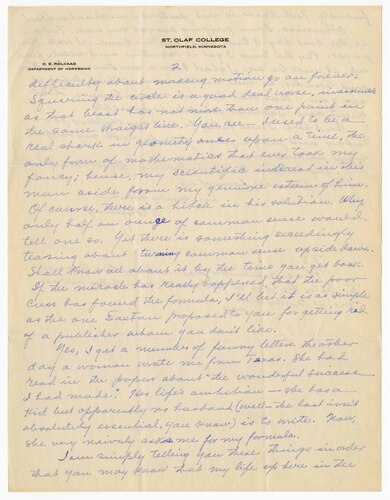 ST. OLAF COLLEGE
NORTHFIELD, MINNESOTA
O. E. ROLVAAG
DEPARTMENT OF NORWEGIAN
2
difficulty about making motion go on forever.
Squaring the circle is a good deal worse, inasmuch
as that beast has not more than one point in
the same straight line. You see — I used to be a
real shark in geometry once upon a time, the
only form of mathematics that ever took my
fancy; hence, my scientific interest in this
man aside from my genuine esteem of him.
Of course, there is a hitch in his solution. Why,
only half an ounce of common sense would
tell one so. Yet there is something exceedingly
teasing about turning common sense upside down.
Shall know all about it by the time you get back.
If the miracle has really happened, that the poor
Cuss has found the formula, I'll bet it is as simple
as the one proposed to you for getting rid
of a publisher whom you don't like.
Yes, I get a number of funny letters. The other
day a woman wrote me from Texas. She had
read in the papers about "the wonderful success
I had made." Her life's ambition — she has a
kid but apparently no husband (well — the last isn't
absolutely essential, you know) is to write. Now,
she very naively asks me for my formula.
I am simply telling you these things in order
that you may know that my life up here in the